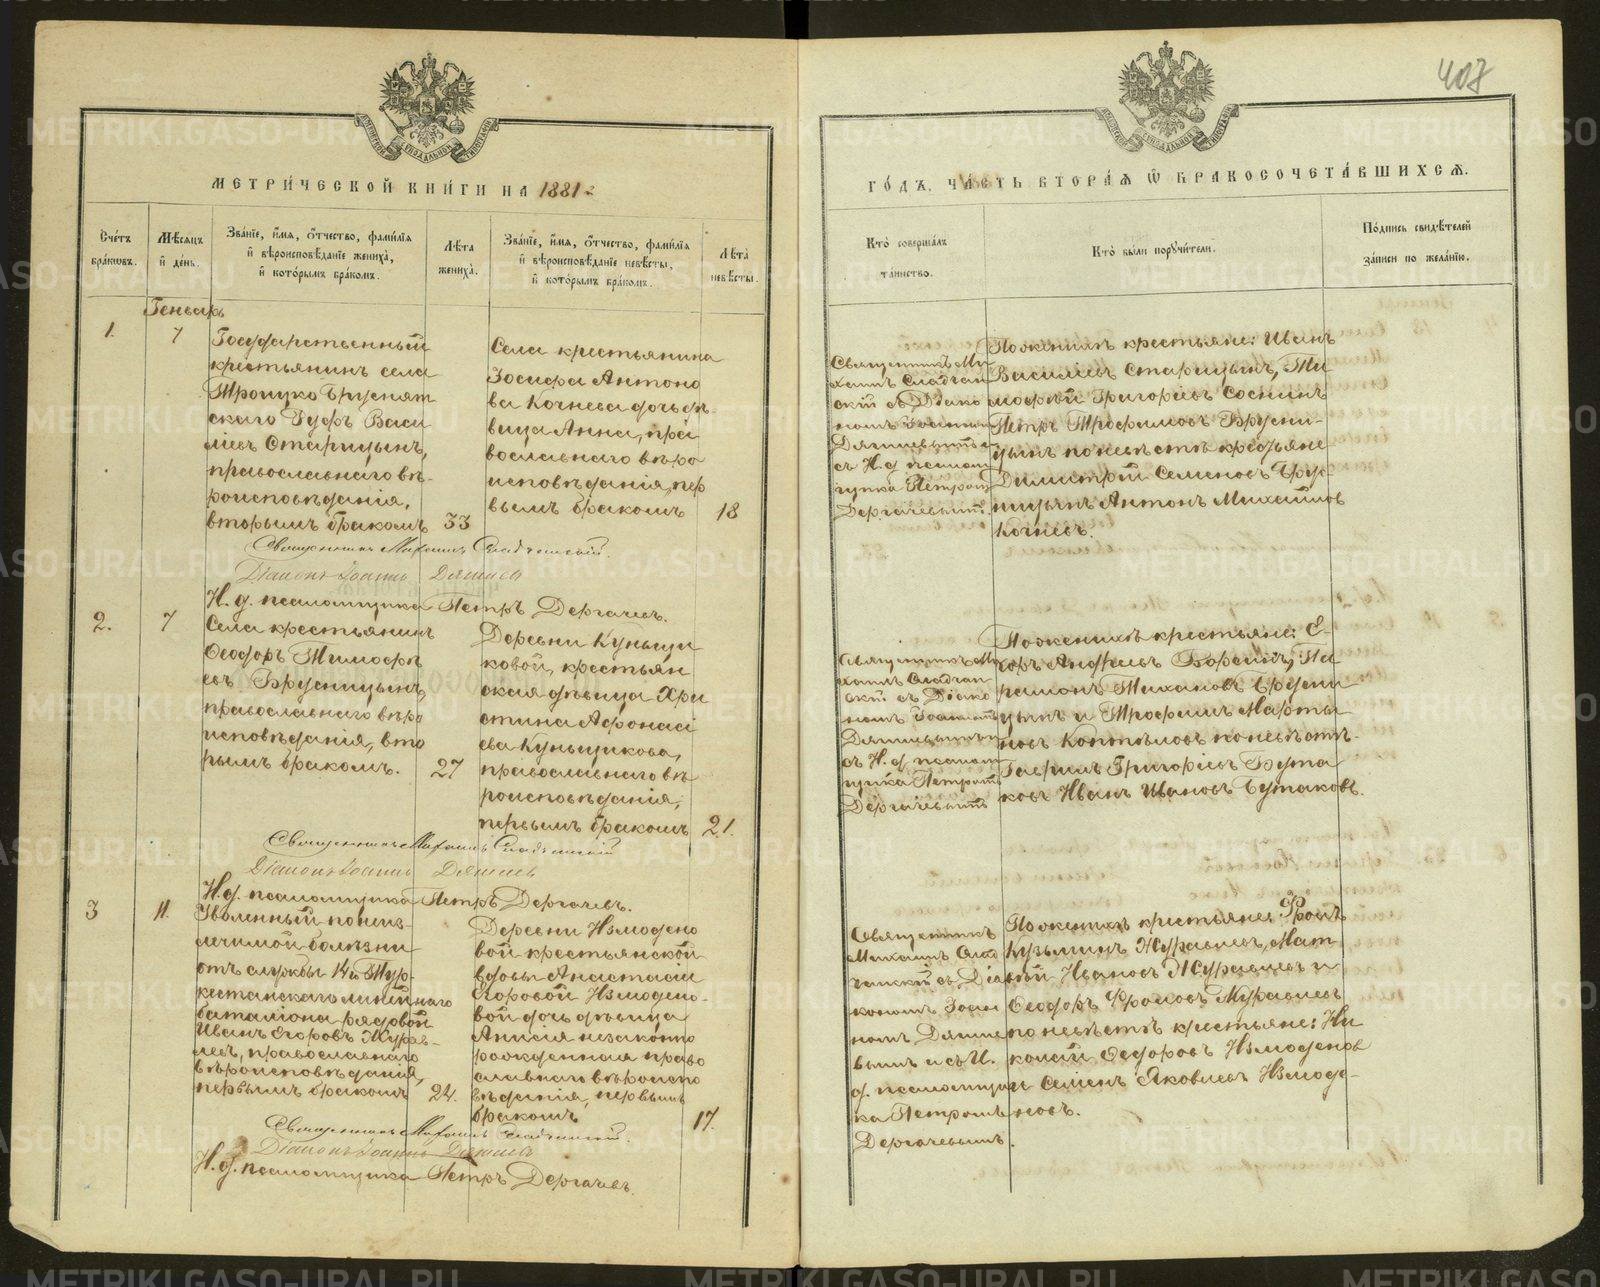 407
МЕТРИ́ЧЕСКОЙ КНИ́ГИ НА 1881
ГО́ДЪ, ЧА́СТЬ ВТОРА́Я Ѿ БРАКОСОЧЕТА́ВШИХСЯ.
Сче́тъ бра́ковъ.
Мѣ́сяцъ и҆ де́нь.
Зва́нїе, и҆́мя, ѻ҆́тчество, фами́лїя
и҆ вѣроисповѣ́данїе жениха̀,
и҆ кото́рымъ бра́комъ.
Лѣ́та жениха̀.
Зва́нїе, и҆́мя, ѻ҆́тчество, фами́лїя
и҆ вѣроисповѣ́данїе невѣ́сты,
и҆ кото́рымъ бра́комъ.
Лѣ́та невѣ́сты.
Кто̀ соверша́лъ
та́инство.
Кто̀ бы́ли порꙋчи́тели.
По́дпись свидѣ́телей
за́писи по жела́нїю.
Геньварь
1.
7
Государственный
крестьянинъ села
Троицко Брусят
скаго Руфъ Васи
льевъ Старицынъ,
православнаго вѣ-
роисповѣданія,
вторымъ бракомъ
33
Села крестьянина
Зосифа Антоно
ва Кочнева дочь дѣ-
вица Анна, пра
вославнаго вѣро
исповѣданія, пер
вымъ бракомъ
18
Священникъ Ми
хаилъ
скій съ Діако
номъ Іоанном
съ И. д. псалом
щика Петромъ
Дергачевымъ.
По женихѣ крестьяне: Иванъ
Васильевъ Старицынъ, Ти
мофей Григорьевъ Соснинъ
Петръ Трофимовъ Брусни-
цынъ по невѣстѣ крестьяне
Димитрій Семеновъ Брус-
ницынъ Антонъ Михайлов
Кочневъ.
Священникъ Михаилъ
Діаконъ Іоаннъ
И. д. псаломщика Петръ Дергачевъ.
2.
7
Села крестьянинъ
Ѳеодоръ Тимофѣ
евъ Брусницынъ,
православнаго вѣро
исповѣданія, вто
рымъ бракомъ.
27
Деревни Куньщи
ковой, крестьян
ская дѣвица Хри
стина Афонасі
ева Куньщикова,
православнаго вѣ
роисповѣданія,
первымъ бракомъ
21.
Священникъ Ми
хаилъ
скій съ Діако
номъ Іоанномъ
съ И. д. псалом
щика Петромъ
Дергачевымъ
По женихѣ крестьяне: Е-
горъ Андреевъ
Тихановъ Брусни
цынъ и Трофимъ Марты
новъ Коптѣловъ по невѣстѣ
Гавріилъ Григорьевъ Бута
ковъ Иванъ Ивановъ Бутаковъ.
Священникъ Михаилъ
Діаконъ Іоаннъ
И. д. псаломщика Петръ Дергачевъ.
3
11.
Уволенный по неиз-
лечимой болѣзни
отъ службы 14й Тур-
кестанскаго линейнаго
баталіона рядовой
Иванъ Егоровъ Журав-
левъ, православнаго
вѣроисповѣданія,
первымъ бракомъ
24.
Деревни Измодено
вой крестьянской
вдовы Анастасіи
Егоровой Измодено-
вой дочь дѣвица
Анисія незаконно
рожденная право
славнаго вѣроиспо
вѣданія, первымъ
бракомъ
17.
Священникъ
Михаилъ
съ Діа
кономъ Іоан
номъ
вымъ и съ И.
д. псаломщи
ка Петромъ
Дергачевымъ.
По женихѣ крестьяне: Фролъ
Кузьминъ Журавлевъ, Мат
вѣй Ивановъ Журавлевъ и
Ѳеодоръ Фроловъ Журавлевъ
по невѣстѣ крестьяне: Ни
колай Ѳедоровъ Измоденов
и Семенъ Яковлевъ Измоде-
новъ.
Священникъ Михаилъ
Діаконъ Іоаннъ
И. д. псаломщика Петръ Дергачевъ.
METRIKI.GASO-URAL.RU